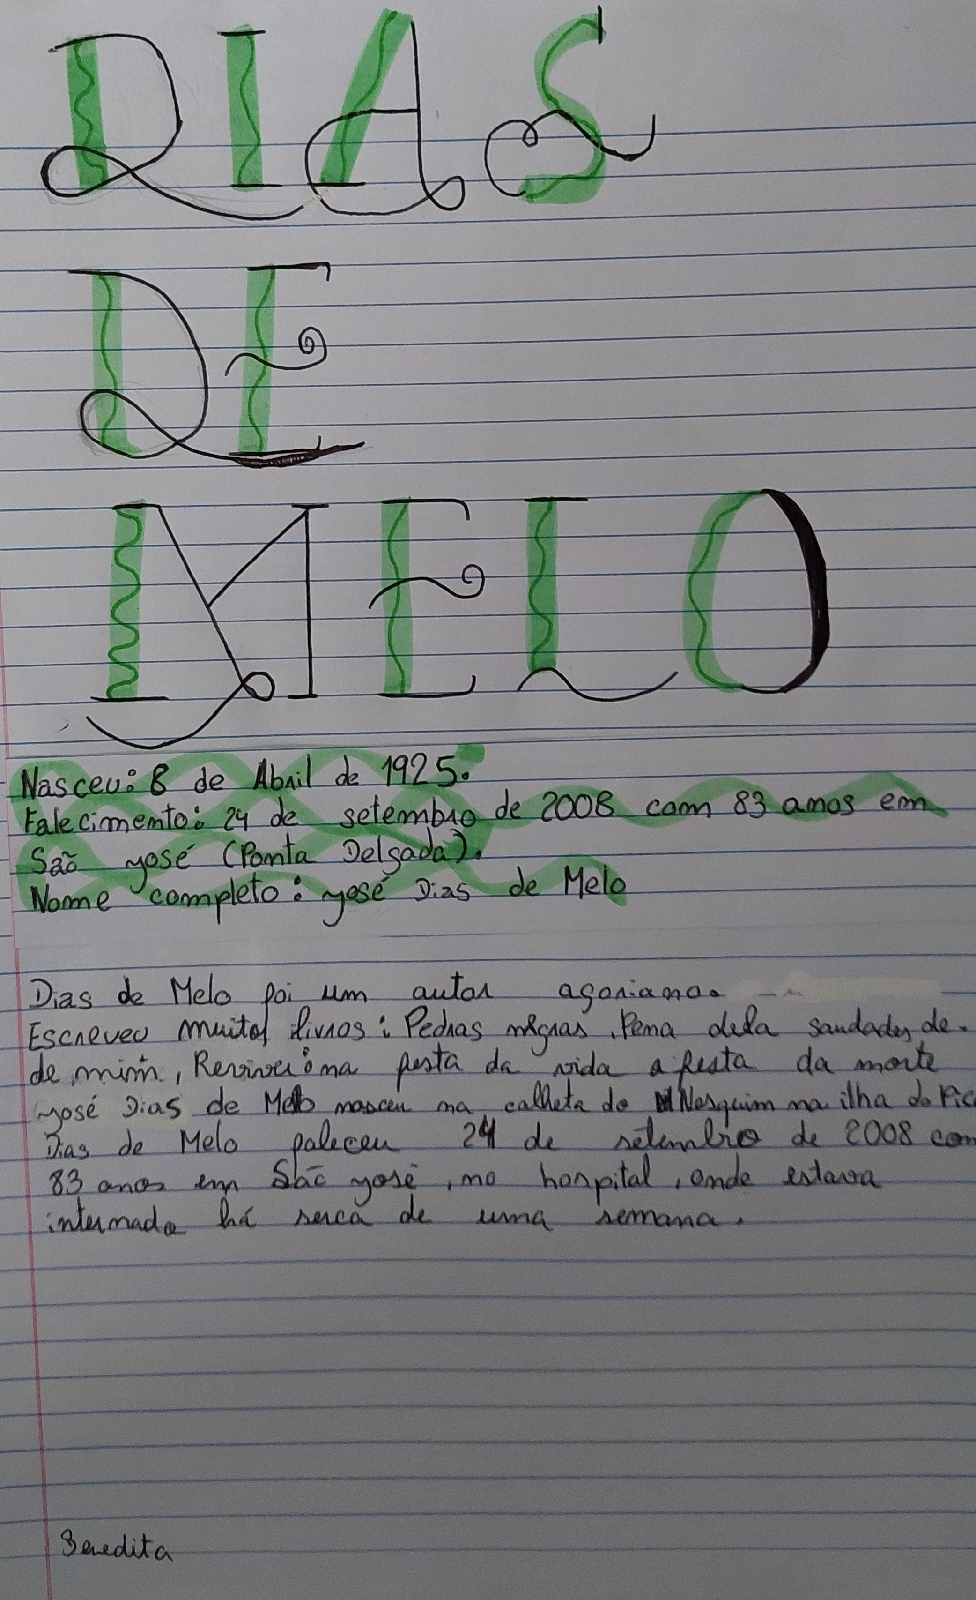 DIAS
DE
MELO
Nasceu: 8 de Abril de 1925.
Falecimento: 24 de setembro de 2008 com 83 anos em
São José (Ponta Delgada).
Nome completo: José Dias de Melo
Dias de Melo foi um autor açoriano.
Escreveu muitos livros: Pedras negras, Pena dela saudades de.
de mim, Reviver: na festa da vida a festa da morte
José Dias de Melo nasceu na calheta do Nesquim na ilha do Pico
Dias de Melo faleceu 24 de setembro de 2008 com
83 anos em São José, no hospital, onde estava
internado há serca de uma semana.
Benedita